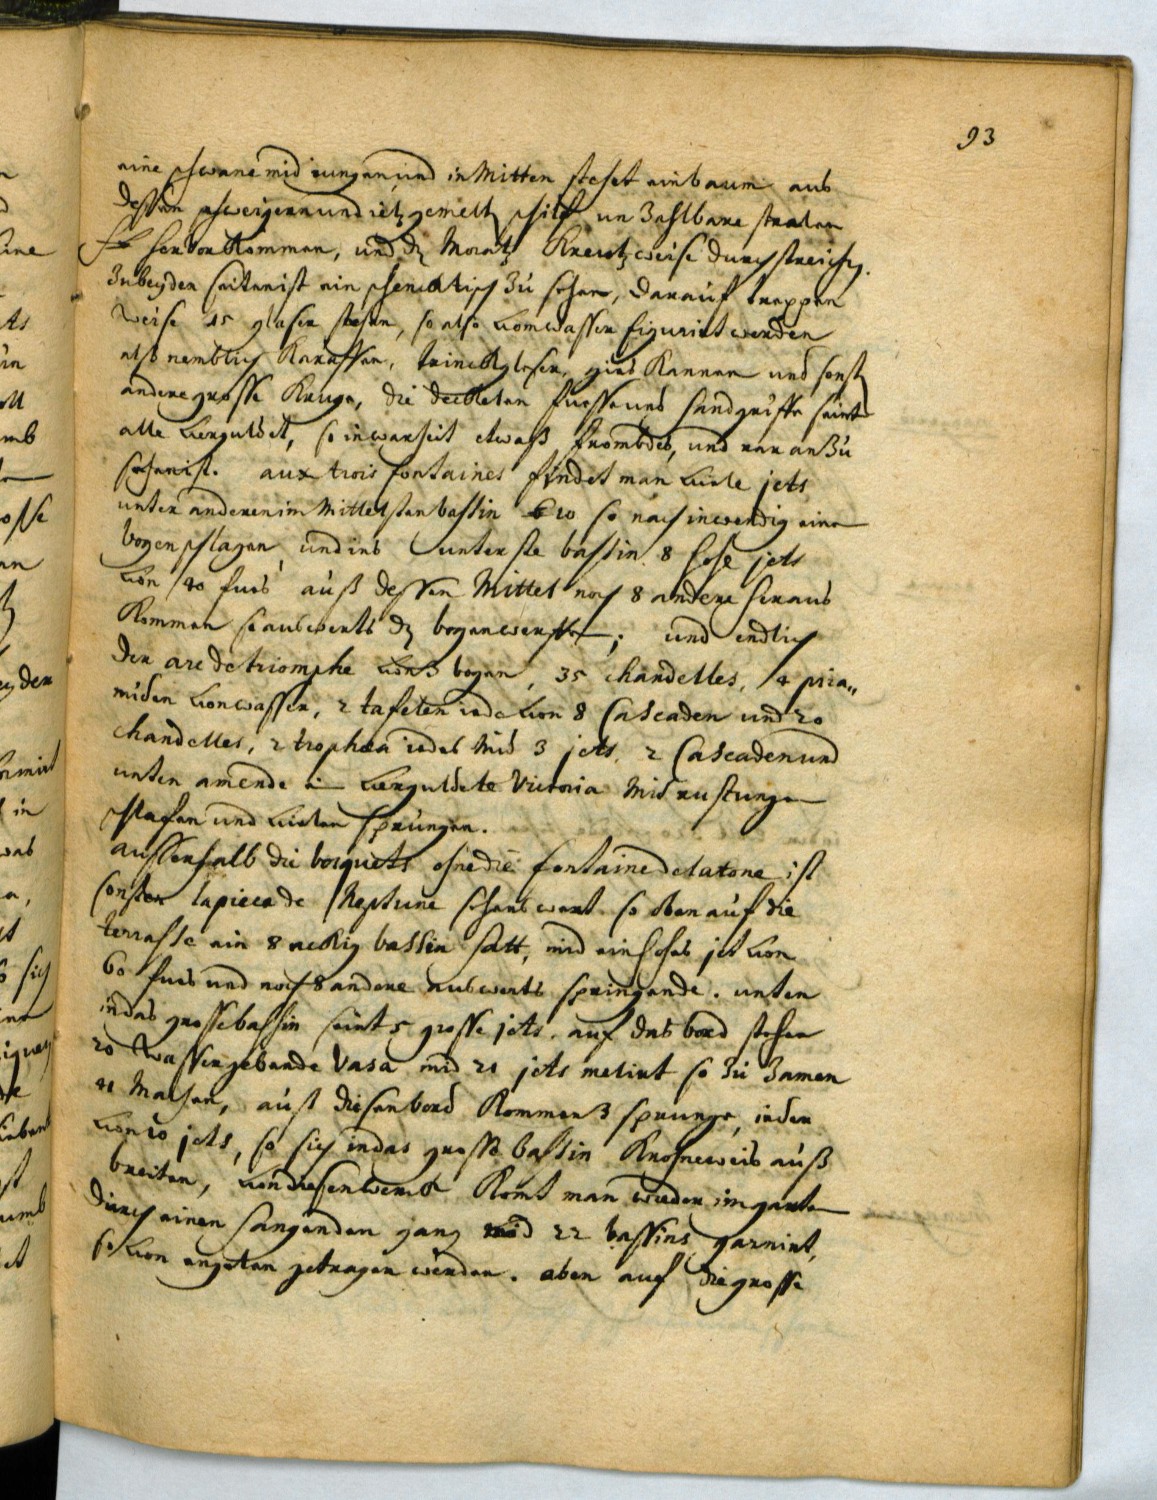 93
eine schwane mid jungen, und in Mitten stehet ein baum aus
dessen zweigern und itz gemelt schilf un Zahlbare stralen
hervor kommen, und dz Moratz Kreutzweise durchstreichen.
Zu beyden seiten ist ein schencktisch Zu sehen, darauf trappen
weise 15 glaser stehen, so also von wasser figurirt werden
als nemblich Karaffen, trinckglaser, gies Kannen und sonst
andere grosse Kruge, die deckelen fuesse und handgriffe seint
alle verguldet, so in warheit etwaß frombdes, und rar an Zu
sehen ist. aux trois fontaines findet man viele jets
unter anderen im Mittelsten bassin 10 so nach inwendig eine
bogen schlagen, und ins unterste bassin 8 hohe jets
von 40 fues auß dessen Mittel noch 8 andere heraus
Kommen so auswerts dz bogen werffen; und endlich
der arc de triomphe von 3 bogen, 35 chandelles, 4 pira„
miden von wasser, 2 tafelen iede von 8 Cascaden und 20
chandelles, 2 trophæa iedes Mid 3 jets, 2 Cascaden und
unten am ende verguldete Victoria Mid rustungen
sclafen und vielen sprüngen.
ausserhalb die bosquets ohne die fontaine de latone ist
sonsten la piece de Neptune sehens wert. so oben auf die
terrasse ein 8 eckig bassin hatt, mid ein hohes jet von
60 fues und noch 8 andere auswerts springende. unten
in das grosse bassin seint 5 grosse jets. auf das bord stehen
20 Wassergebende Vasa mid 21 jets melirt so Zu Zamen
41 Machen, auß diesen bord Kommen 3 sprunge, ieder
von 10 jets, so sich in das grosse bassin Krohneweis auß
breiten, von diesen wercke Komt man wieder im garten
durch einen hangenden gang mid 22 bassins garnirt,
so von engelen getragen werden. oben auf die grosse